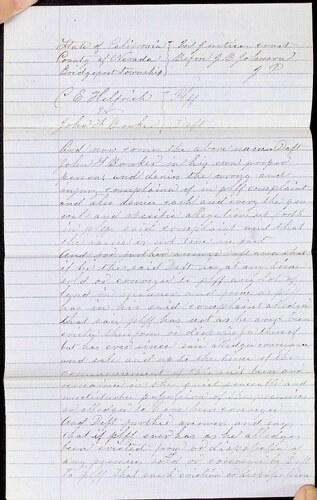 State of California } In Justice Court
County of Nevada } Before J. B. Johnson
Bridgeport Township } J P
C E Helfrich } Plff
vs
John F Bowker } Deft
And now comes the above named Deft
John F Bowker in his own proper
person and denies the wrong and
injury complained of in plffs complaint
and also denies each and every the gen
eral and specific allegations set forth
in plffs said complaint and that
the same is not true in part
And for further answer Deft avers that
if he the said Deft has at any time
sold or conveyed to plff any lot of
land in manner and form as plff
has in his said complaint alleged
that said plff has not as he says been
evicted therefrom or dispossessed thereof
but has ever since said alleged conveyance
and sale and up to the time of the
commencement of this suit been and
remained in the quiet peaceable and
undisturbed possession of the premises
so alleged to have been conveyed
And Deft further answers and says
that if plff ever has as he alleges
been evicted from or dispossessed of
any premises sold or conveyed by Deft
to plff that such eviction or dispossession